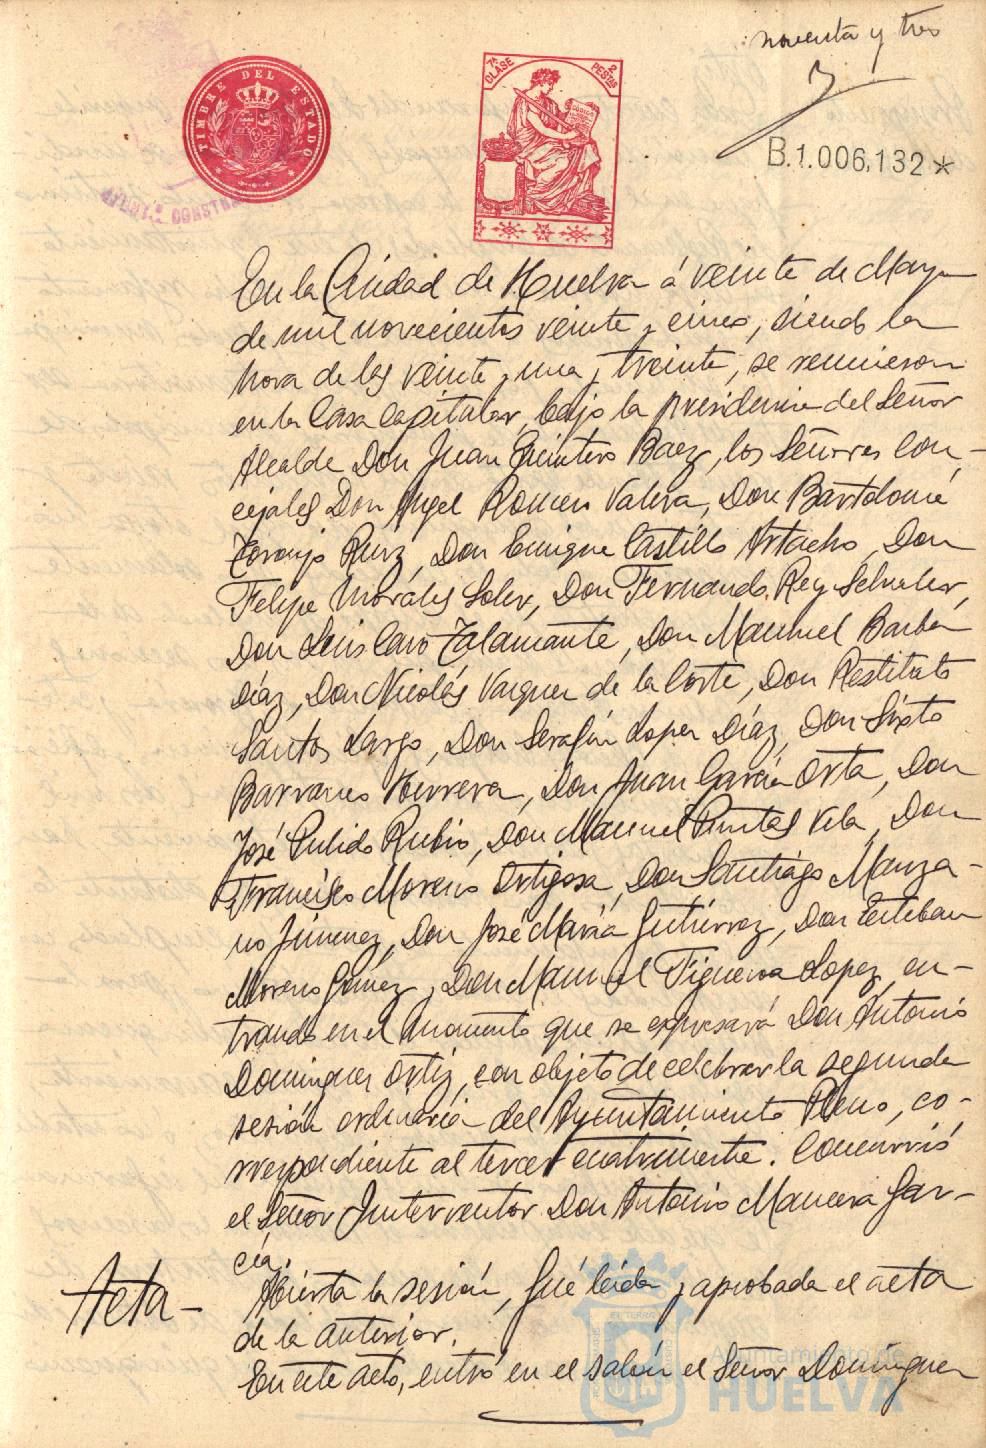 noventa y tres
TIMBRE DEL ESTADO
7ª CLASE
2 PESETAS
B.1.006,132*
CONSTI
En la Ciudad de Huelva á veinte de Mayo
de mil novecientos veinte y cinco, siendo la
hora de las veinte y una y treinta, se reunieron
en la Casa Capitular, bajo la presidencia del Señor
Alcalde Don Juan Quintero Baez, los Señores Con-
cejales Don Angel Romero Valera, Don Bartolomé
Toronjo Ruiz, Don Enrique Castillo Artacho, Don
Felipe Morales Soler, Don Fernando Rey
Don Luis Caro Talamante, Don Manuel Barba
Díaz, Don Nicolás Vazquez de la Corte, Don Restituto
Santos Largo, Don Serafín Lopez Díaz, Don Sixto
Barranco Herrera, Don Juan García Orta, Don
José Pulido Rubio, Don Manuel Puntas Vela, Don
Francisco Moreno Ortigosa, Don Santiago Manza-
no Jimenez, Don José María Gutiérrez, Don Esteban
Moreno Gómez y Don Manuel Figueroa Lopez, en-
trando en el momento que se expresará Don Antonio
Dominguez Ortiz, con objeto de celebrar la segunda
sesión ordinaria del Ayuntamiento Pleno, co-
rrespondiente al tercer cuatrimestre. Concurrió
el Señor Interventor Don Antonio Mancera Gar-
cía.
Acta- Abierta la sesión, fué leida y aprobada el acta
de la anterior.
En este acto, entró en el salón el Señor Domínguez
Ayuntamiento de
HUELVA